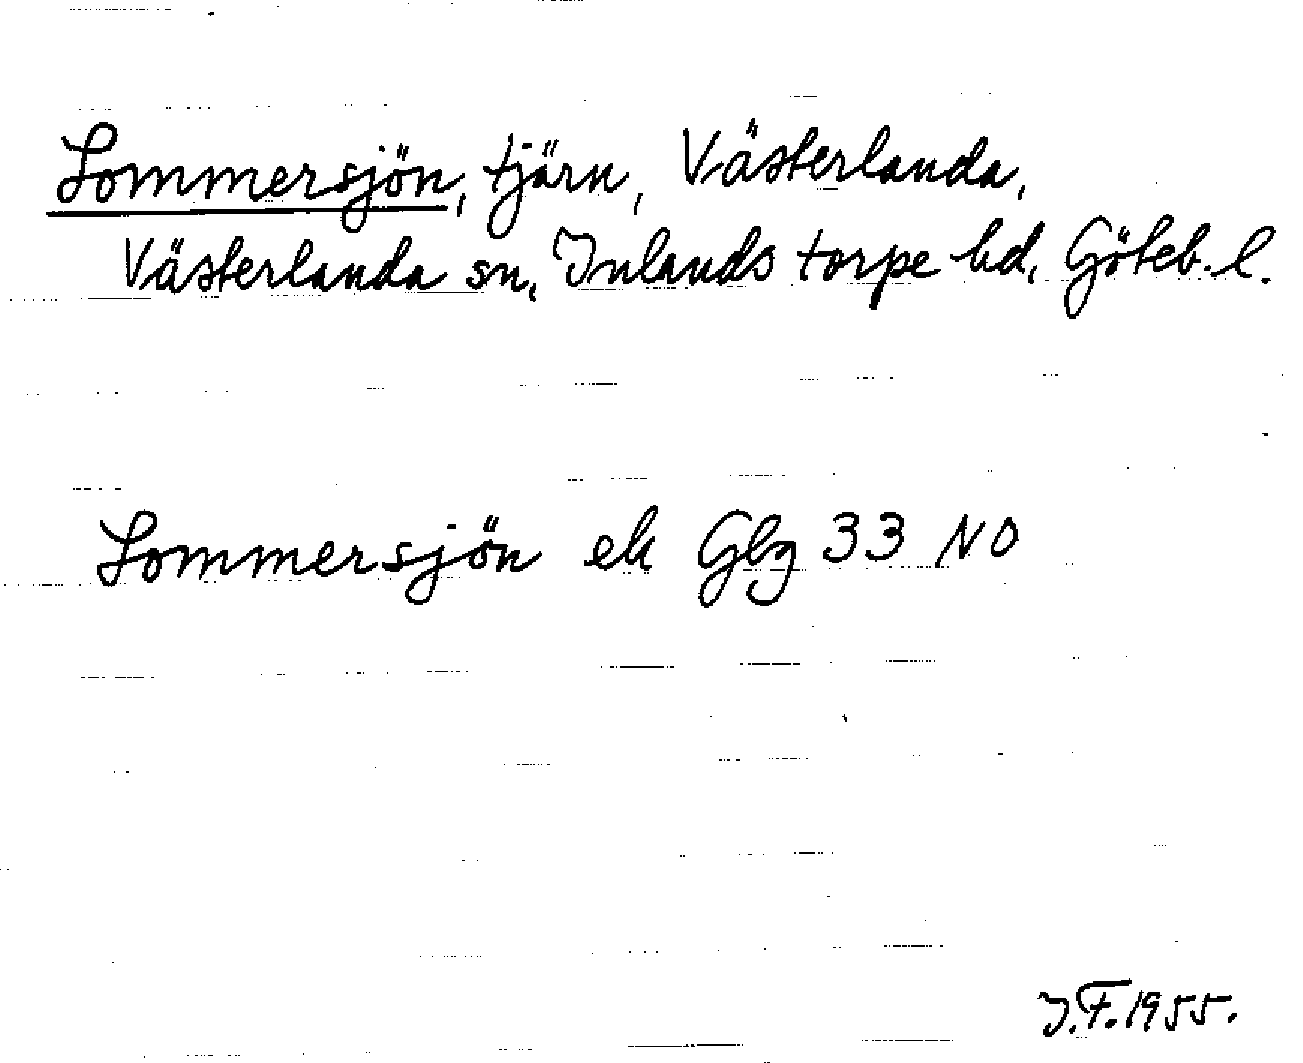 Lommersjön, tjärn, Västerlanda,
Västerlanda sn, Inlands torpe hd, Göteb. l.
Lommersjön ek Gbg 33 NO
J.F. 1955.